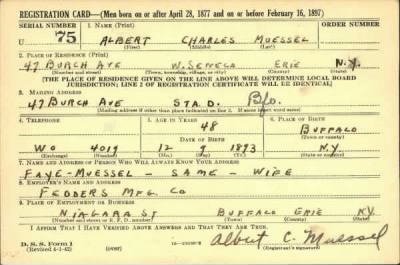 REGISTRATION CARD—(Men born on or after April 28, 1877 and on or before February 16, 1897)
SERIAL NUMBER 1. NAME (Print) ORDER NUMBER
U 75 ALBERT CHARLES MUESSEL
(First) (Middle) (Last)
2. PLACE OF RESIDENCE (Print)
47 BURCH AVE W. SENECA ERIE N.Y.
(Number and street) (Town, township, village, or city) (County) (State)
[THE PLACE OF RESIDENCE GIVEN ON THE LINE ABOVE WILL DETERMINE LOCAL BOARD
JURISDICTION; LINE 2 OF REGISTRATION CERTIFICATE WILL BE IDENTICAL]
3. MAILING ADDRESS
47 BURCH AVE STA. D. Bflo.
[Mailing address if other than place indicated on line 2. If same insert word same]
4. TELEPHONE 5. AGE IN YEARS 6. PLACE OF BIRTH
48 BUFFALO
DATE OF BIRTH (Town or county)
WO 4019 12 9 1893 N.Y.
(Exchange) (Number) (Mo.) (Day) (Yr.) (State or country)
7. NAME AND ADDRESS OF PERSON WHO WILL ALWAYS KNOW YOUR ADDRESS
FAYE-MUESSEL - SAME - WIFE
8. EMPLOYER'S NAME AND ADDRESS
FEDDERS MFG. CO
9. PLACE OF EMPLOYMENT OR BUSINESS
NIAGARA ST BUFFALO ERIE NY.
(Number and street or R. F. D. number) (Town) (County) (State)
I AFFIRM THAT I HAVE VERIFIED ABOVE ANSWERS AND THAT THEY ARE TRUE.
D. S. S. Form 1
(Revised 4-1-42) (over) Albert C. Muessel
(Registrant's signature)